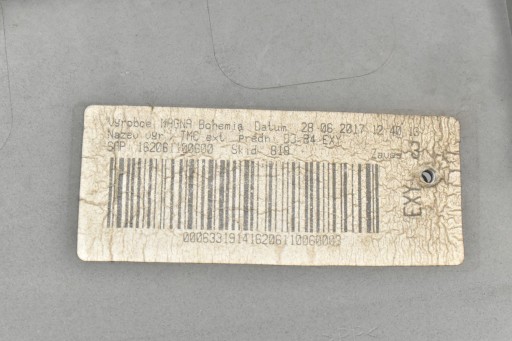 Vyrobce: MAGNA Bohemia Datum: 28.06.2017 12:40:10
Nazev vyr.: TMC ext. predni 83-84 EXY
SAP: 16206110060D Skid: 818
EXY 3
00063319141620611006D083